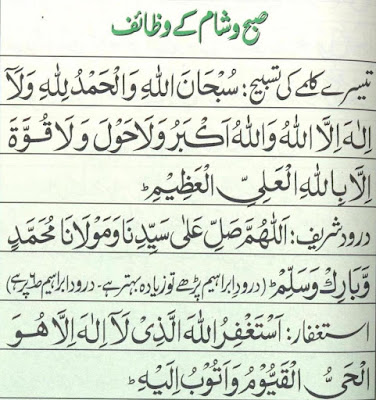 صبح و شام کے وظائف
تیسرے کلمے کی تسبیح: سُبْحَانَ اللهِ وَالْحَمْدُ لِلّٰهِ وَلَآ
اِلٰهَ اِلَّا اللهُ وَاللهُ اَكْبَرُ وَلَا حَوْلَ وَلَا قُوَّةَ
اِلَّا بِاللهِ الْعَلِيِّ الْعَظِيْمِ ؕ
درود شریف: اَللّٰهُمَّ صَلِّ عَلٰى سَيِّدِنَا وَمَوْلَانَا مُحَمَّدٍ
وَّبَارِكْ وَسَلِّمْ ؕ (درود ابراہیم پڑھے تو زیادہ بہتر ہے - درود ابراہیم ص۶ پر ہے)
استغفار: اَسْتَغْفِرُ اللهَ الَّذِىْ لَآ اِلٰهَ اِلَّا هُوَ
الْحَىُّ الْقَيُّوْمُ وَاَتُوْبُ اِلَيْهِ ؕ